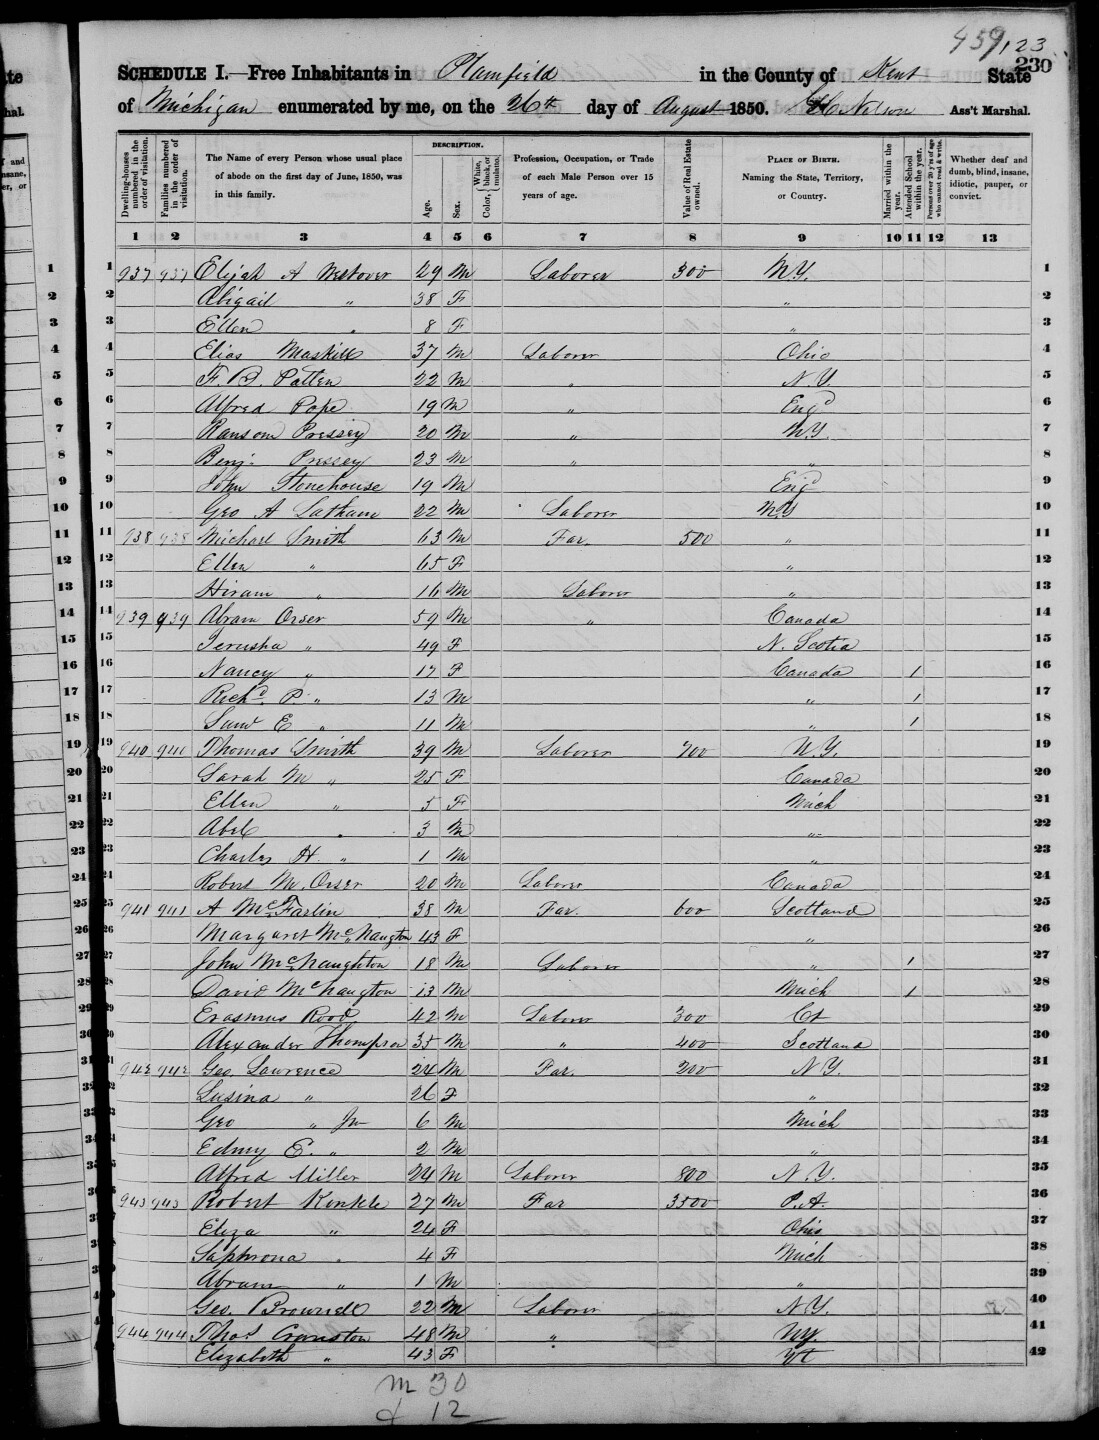 459 123
230
SCHEDULE I.—Free Inhabitants in Plainfield in the County of Kent State
of Michigan enumerated by me, on the 26th day of August 1850. Nelson Ass't Marshal.
Dwelling-houses numbered in the order of visitation.
Families numbered in the order of visitation.
The Name of every Person whose usual place of abode on the first day of June, 1850, was in this family.
DESCRIPTION.
Age.
Sex.
Color, { White, black, or mulatto.
Profession, Occupation, or Trade of each Male Person over 15 years of age.
Value of Real Estate owned.
PLACE OF BIRTH. Naming the State, Territory, or Country.
Married within the year.
Attended School within the year.
Persons over 20 y'rs of age who cannot read & write.
Whether deaf and dumb, blind, insane, idiotic, pauper, or convict.
1 2 3 4 5 6 7 8 9 10 11 12 13
1 937 937 Elijah A Westover 29 M Laborer 300 N.Y. 1
2 Abigail " 38 F " 2
3 Ellen " 8 F " 3
4 Elias Maskill 37 M Laborer Ohio 4
5 F. B. Patten 22 M " N.Y. 5
6 Alfred Pope 19 M " Engd 6
7 Ransom Pressey 20 M " N.Y. 7
8 Benj. Pressey 23 M " " 8
9 John Stonehouse 19 M Engd 9
10 Geo A Latham 22 M Laborer N.Y 10
11 938 938 Michael Smith 63 M Far. 500 " 11
12 Ellen " 65 F " 12
13 Hiram " 16 M Laborer " 13
14 939 939 Abram Orser 59 M " Canada 14
15 Jerusha " 49 F N. Scotia 15
16 Nancy " 17 F Canada 1 16
17 Richd P. " 13 M " 1 17
18 Saml E " 11 M " 1 18
19 940 940 Thomas Smith 39 M Laborer 700 N.Y. 19
20 Sarah M " 25 F Canada 20
21 Ellen " 5 F Mich 21
22 Abel " 3 M " 22
23 Charles H " 1 M " 23
24 Robert M. Orser 20 M Laborer Canada 24
25 941 941 A McFarlin 38 M Far. 600 Scotland 25
26 Margaret McNaugton 43 F " 26
27 John McNaughton 18 M Laborer " 1 27
28 David McNaugton 13 M Mich 1 28
29 Erasmus Rood 42 M Laborer 300 Ct 29
30 Alexander Thompson 35 M " 400 Scotland 30
31 942 942 Geo. Lawrence 24 M Far. 200 N.Y. 31
32 Lusina " 26 F " 32
33 Geo " Jr 6 M Mich 33
34 Edmy E. " 2 M " 34
35 Alfred Miller 24 M Laborer 800 N.Y. 35
36 943 943 Robert Konkle 27 M Far 3500 P.A. 36
37 Eliza " 24 F Ohio 37
38 Saphrona " 4 F Mich 38
39 Abram " 1 M " 39
40 Geo. Brownell 22 M Laborer N.Y. 40
41 944 944 Thos Cranston 48 M " N.Y. 41
42 Elizabeth " 43 F Vt 42
M 30
f 12